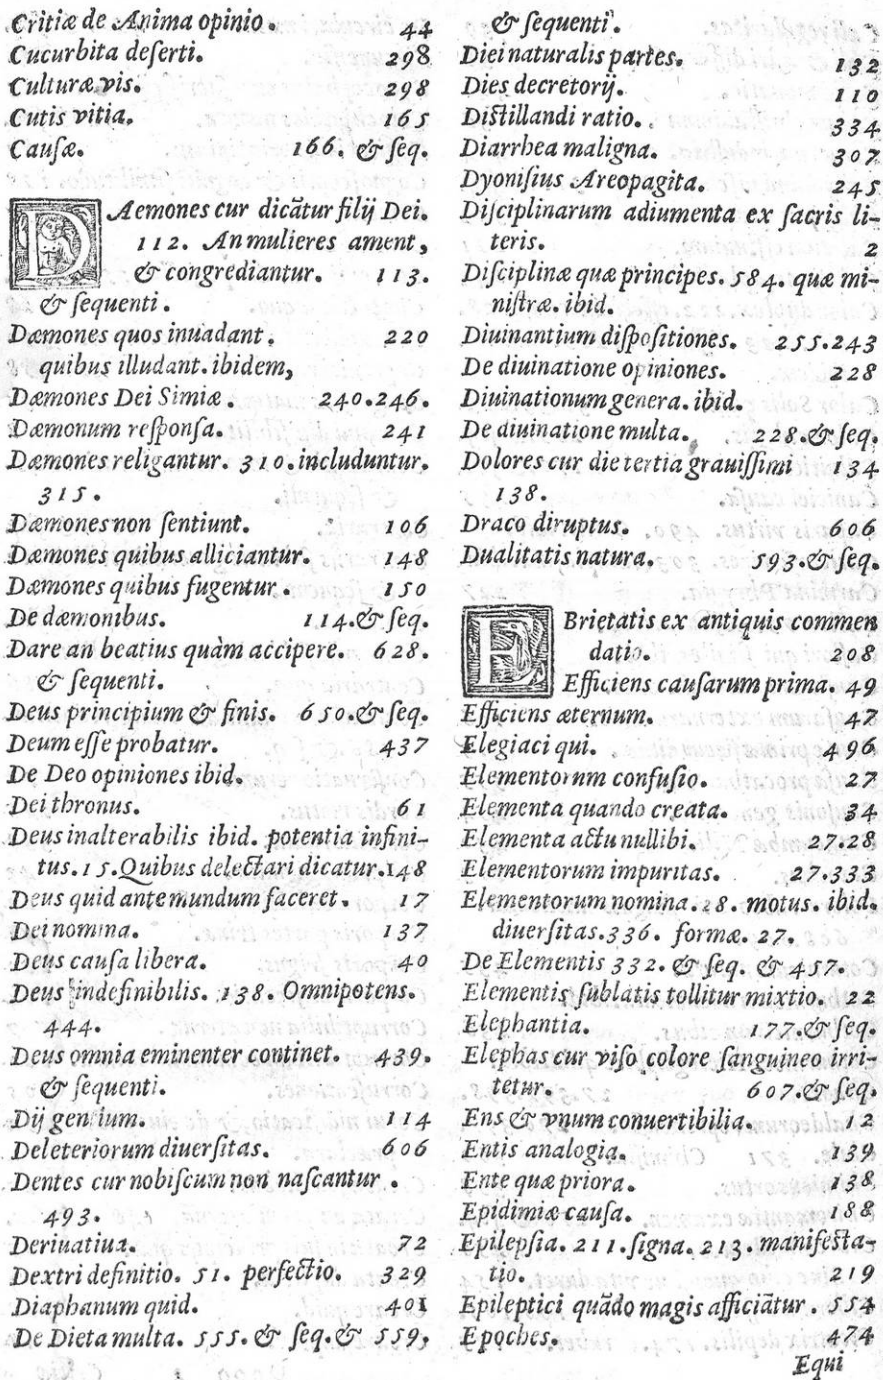 Critiæ de Anima opinio. 44
Cucurbita deſerti. 298
Culturæ vis. 298
Cutis vitia. 165
Cauſæ. 166. & ſeq.
DAemones cur dicãtur filij Dei.
112. An mulieres ament,
& congrediantur. 113.
& ſequenti.
Dæmones quos inuadant. 220
quibus illudant. ibidem,
Dæmones Dei Simiæ. 240.246.
Dæmonum reſponſa. 241
Dæmones religantur. 310. includuntur.
315.
Dæmones non ſentiunt. 106
Dæmones quibus alliciantur. 148
Dæmones quibus fugentur. 150
De dæmonibus. 114.& ſeq.
Dare an beatius quàm accipere. 628.
& ſequenti.
Deus principium & finis. 650.& ſeq.
Deum eſſe probatur. 437
De Deo opiniones ibid.
Dei thronus. 61
Deus inalterabilis ibid. potentia infini-
tus. 15. Quibus delectari dicatur. 148
Deus quid ante mundum faceret. 17
Dei nomina. 137
Deus cauſa libera. 40
Deus indefinibilis. 138. Omnipotens.
444.
Deus omnia eminenter continet. 439.
& ſequenti.
Dij gentium. 114
Deleteriorum diuerſitas. 606
Dentes cur nobiſcum non naſcantur.
493.
Deriuatiua. 72
Dextri definitio. 51. perfectio. 329
Diaphanum quid. 401
De Dieta multa. 555. & ſeq. & 559,
& ſequenti.
Diei naturalis partes. 132
Dies decretorij. 110
Diſtillandi ratio. 334
Diarrhea maligna. 307
Dyoniſius Areopagita. 245
Diſciplinarum adiumenta ex ſacris li-
teris. 2
Diſciplinæ quæ principes. 584. quæ mi-
niſtræ. ibid.
Diuinantium diſpoſitiones. 255.243
De diuinatione opiniones. 228
Diuinationum genera. ibid.
De diuinatione multa. 228.& ſeq.
Dolores cur die tertia grauiſſimi 134
138.
Draco diruptus. 606
Dualitatis natura. 593.& ſeq.
EBrietatis ex antiquis commen
datio. 208
Efficiens cauſarum prima. 49
Efficiens æternum. 47
Elegiaci qui. 496
Elementornm confuſio. 27
Elementa quando creata. 34
Elementa actu nullibi. 27.28
Elementorum impuritas. 27.333
Elementorum nomina. 28. motus. ibid.
diuerſitas. 336. formæ. 27.
De Elementis 332. & ſeq. & 457.
Elementis ſublatis tollitur mixtio. 22
Elephantia. 177.& ſeq.
Elephas cur viſo colore ſanguineo irri-
tetur. 607.& ſeq.
Ens & vnum conuertibilia. 12
Entis analogia. 139
Ente quæ priora. 138
Epidimiæ cauſa. 188
Epilepſia. 211. ſigna. 213. manifeſta-
tio. 219
Epileptici quãdo magis afficiãtur. 554
Epoches. 474
Equi